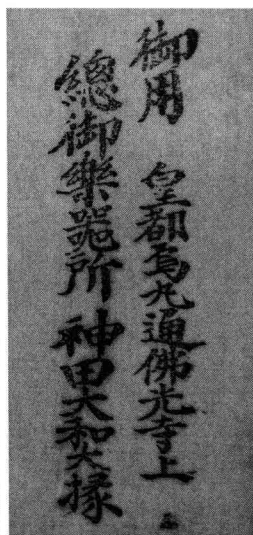 御用 皇都烏丸通佛光寺上
總御樂器所 神田大和大掾